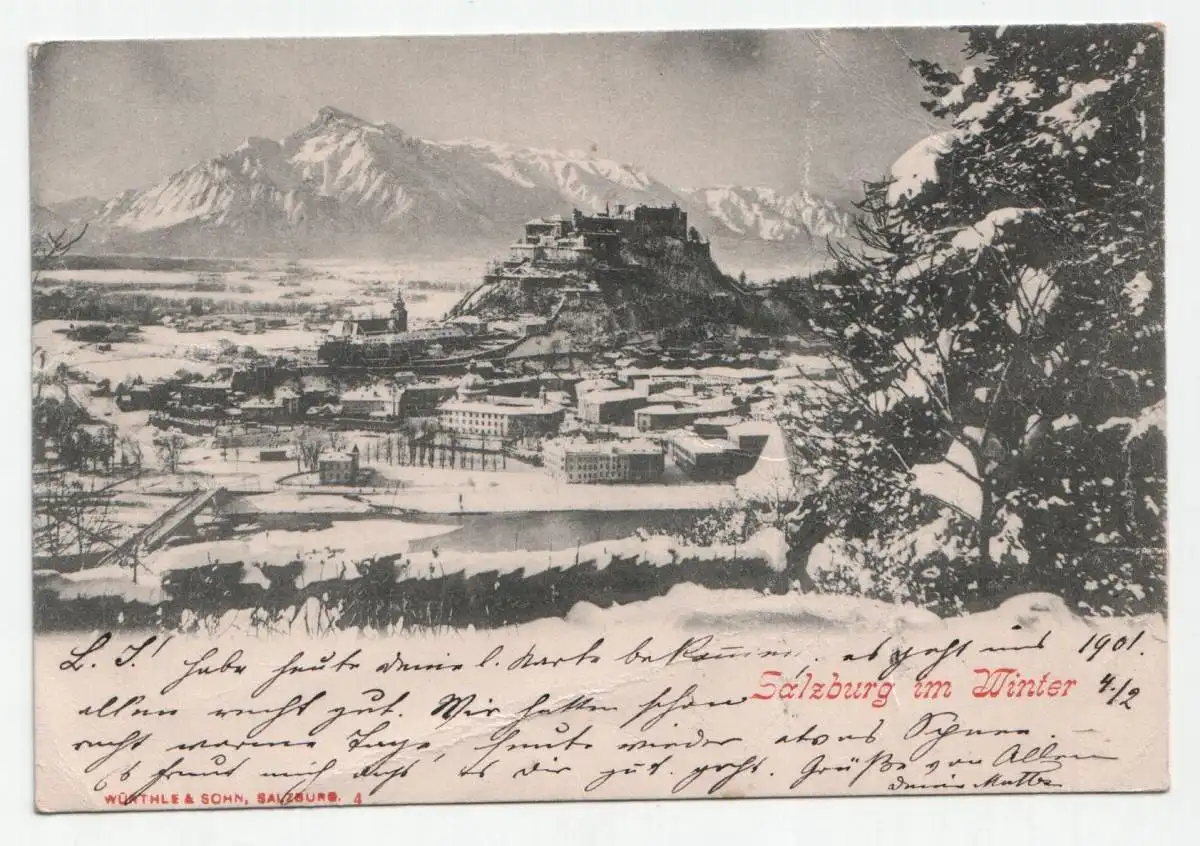 L. J.! habe heute deine l. Karte bekommen. es geht uns 1901.
allen recht gut. Wir hatten schon 4./2
Salzburg im Winter
recht warme Tage, heute wieder etwas Schnee.
Es freut mich daß es dir gut geht. Grüße von Allen
deine Mutter
WÜRTHLE & SOHN, SALZBURG. 4